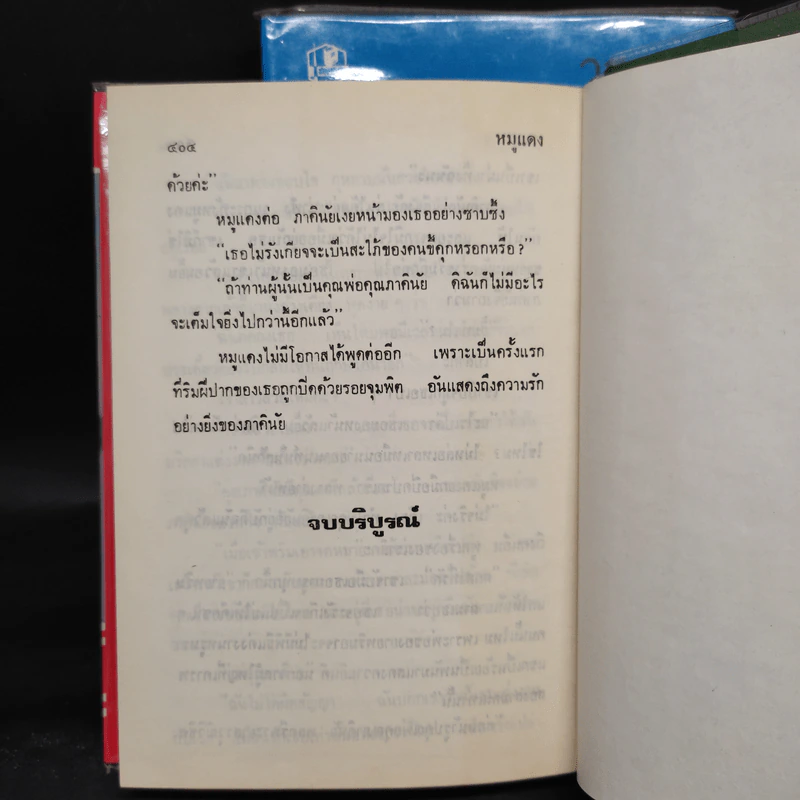 ๔๐๔
หมูแดง
ด้วยค่ะ"
หมูแดงต่อ ภาคินัยเงยหน้ามองเธออย่างซาบซึ้ง
"เธอไม่รังเกียจจะเป็นสะใภ้ของคนขี้คุกหรอกหรือ?"
"ถ้าท่านผู้นั้นเป็นคุณพ่อคุณภาคินัย ดิฉันก็ไม่มีอะไร
จะเต็มใจยิ่งไปกว่านี้อีกแล้ว"
หมูแดงไม่มีโอกาสได้พูดต่ออีก เพราะเป็นครั้งแรก
ที่ริมฝีปากของเธอถูกปิดด้วยรอยจุมพิต อันแสดงถึงความรัก
อย่างยิ่งของภาคินัย
จบบริบูรณ์